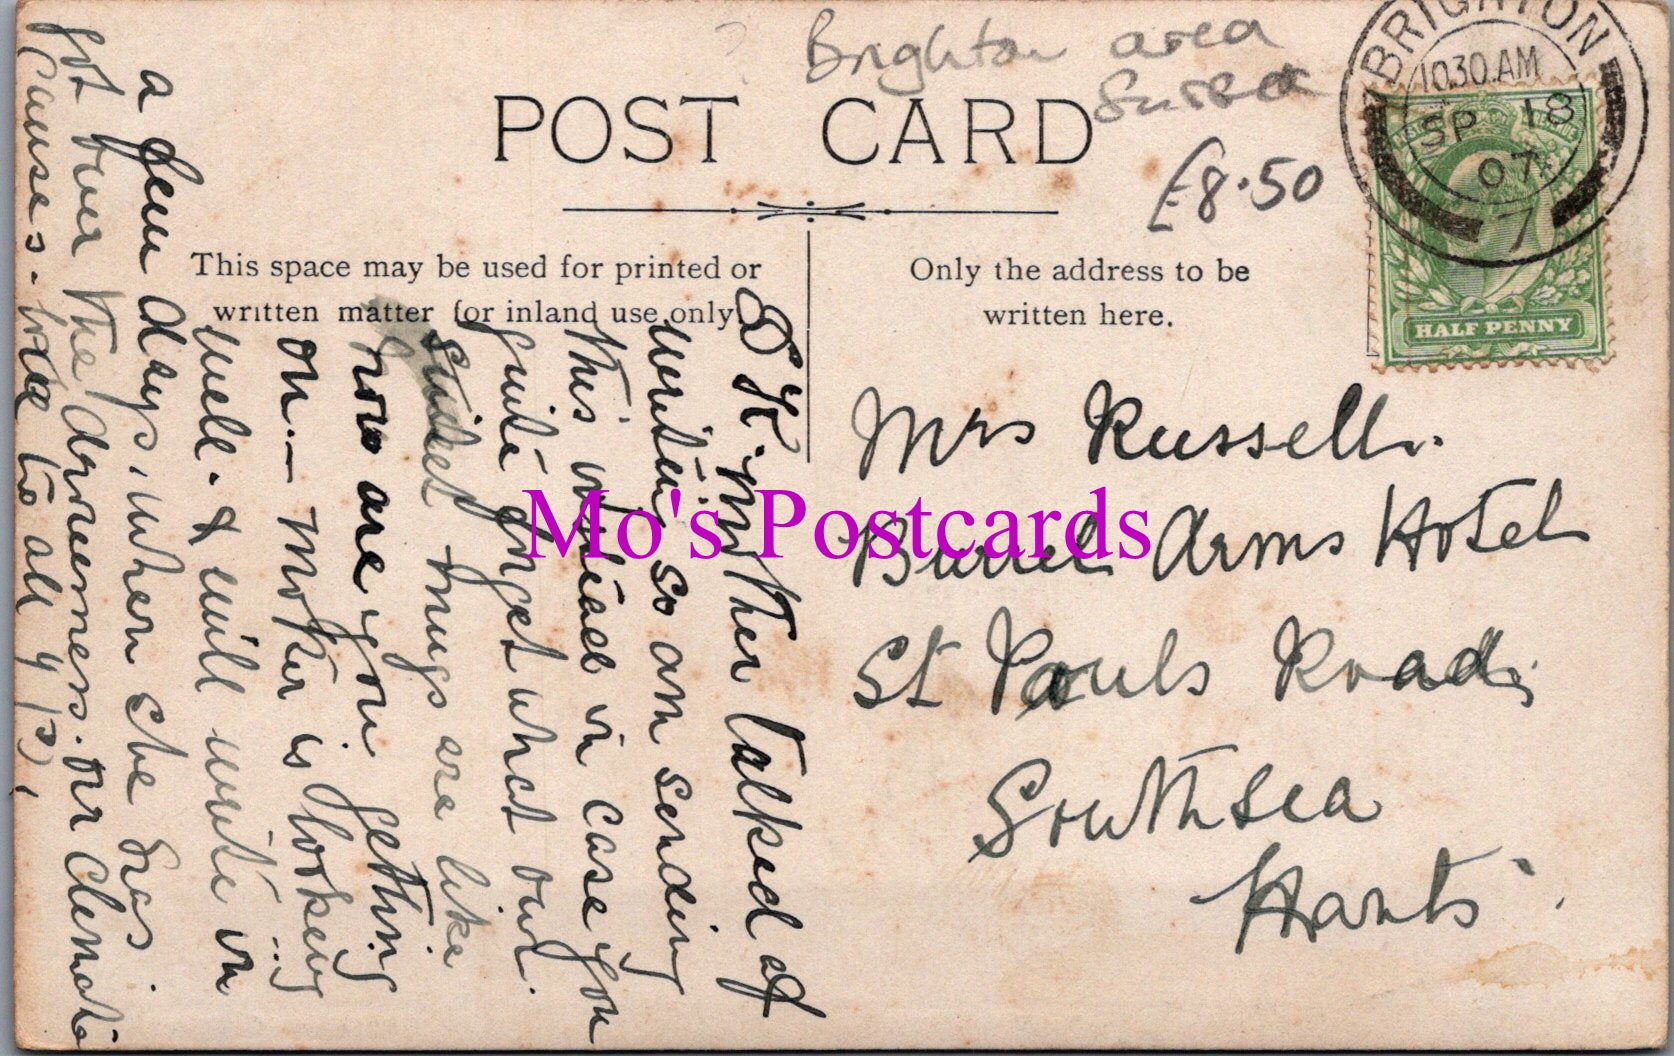 Brighton area
Sussex
£8.50
POST CARD
BRIGHTON
10.30.AM
SP 18
07
7
HALF PENNY
This space may be used for printed or
written matter for inland use only
Only the address to be
written here.
Mrs Russell.
Burrel Arms Hotel
St Pauls Road,
Southsea
Hants.
D K. Mother talked of
writing, so am sending
this instead in case you
quite forget what our
mugs are like
how are you getting
on. — Mother is looking
well. & will write in
a few days, when she has
got over the drowsiness. our climate
causes. love to all
Mo's Postcards